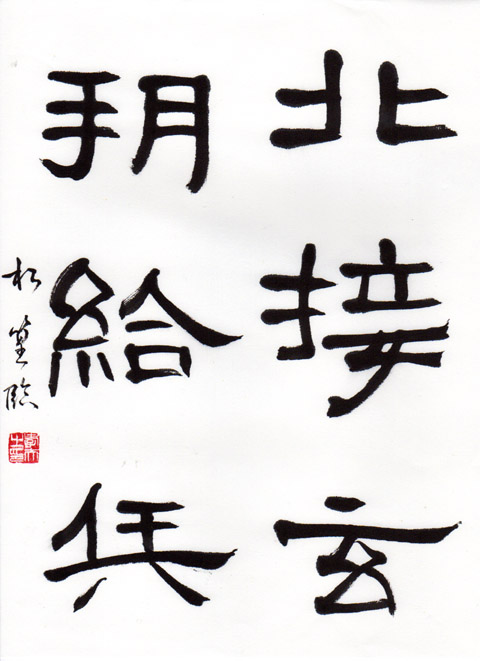 北接玄
朔給兵
松篁臨